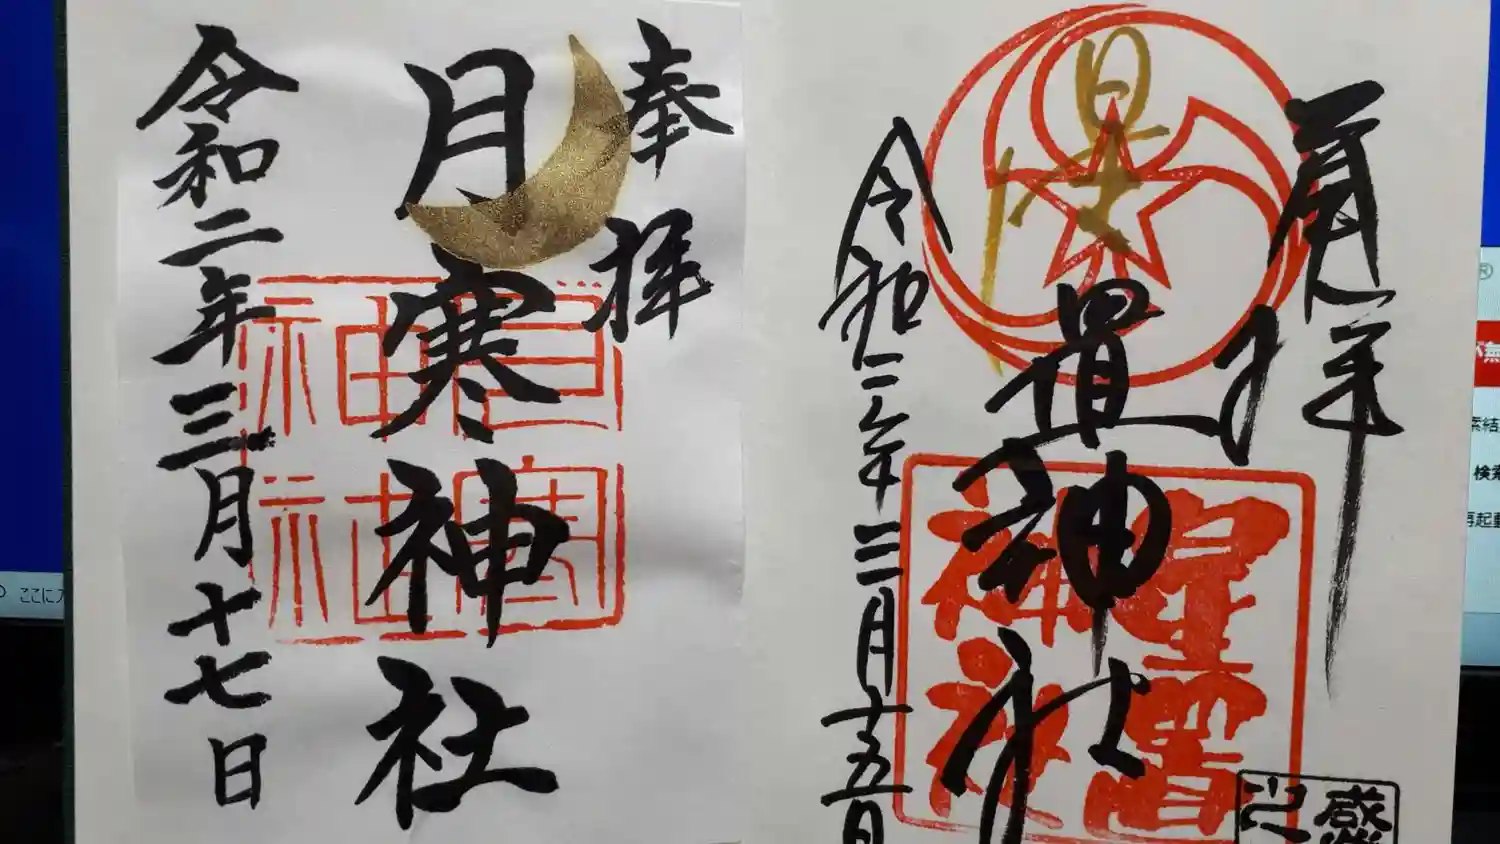 奉拝
星置神社
星置
神社
令和二年三月十五日
奉拝
月寒神社
月寒
神社
令和二年三月十七日
検索
ここに